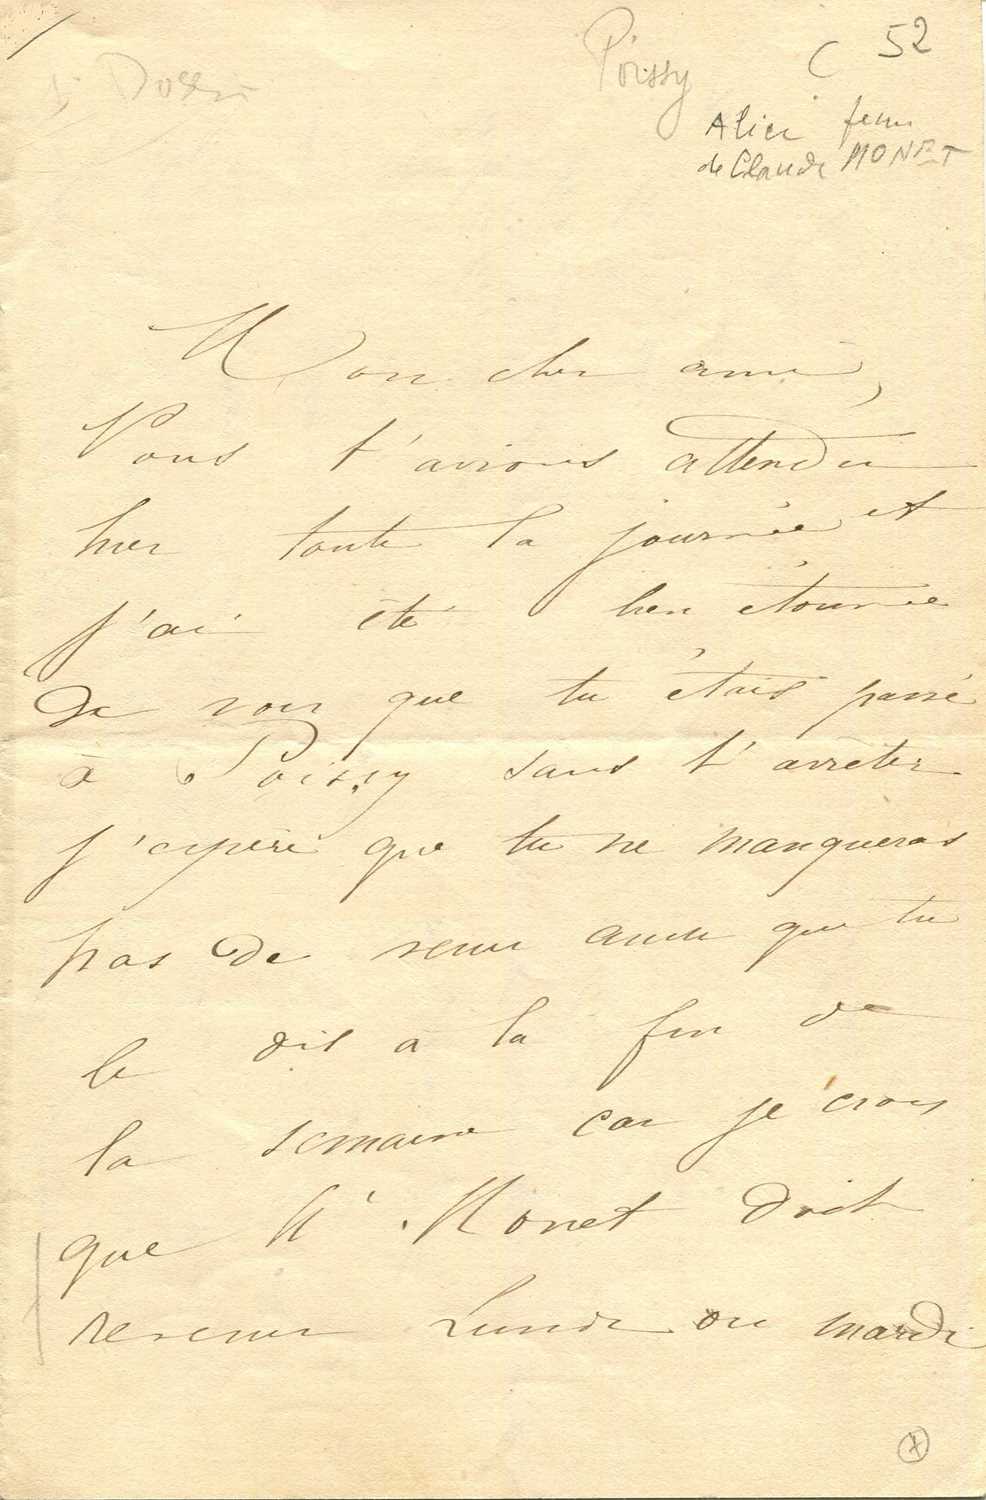 Poissy
C 52
Alice femme
de Claude MONET
Mon cher ami,
Nous t'avions attendu
hier toute la journée et
j'ai été bien étonnée
de voir que tu étais passé
à Poissy sans t'arrêter
j'espère que tu ne manqueras
pas de venir ainsi que tu
le dis à la fin de
la semaine car je crois
que Mr. Monet doit
revenir Lundi ou mardi